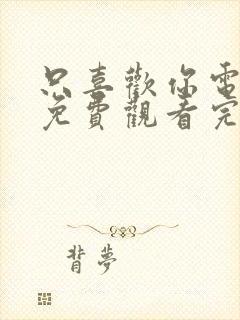 只喜歡你電
免費觀看完
背夢